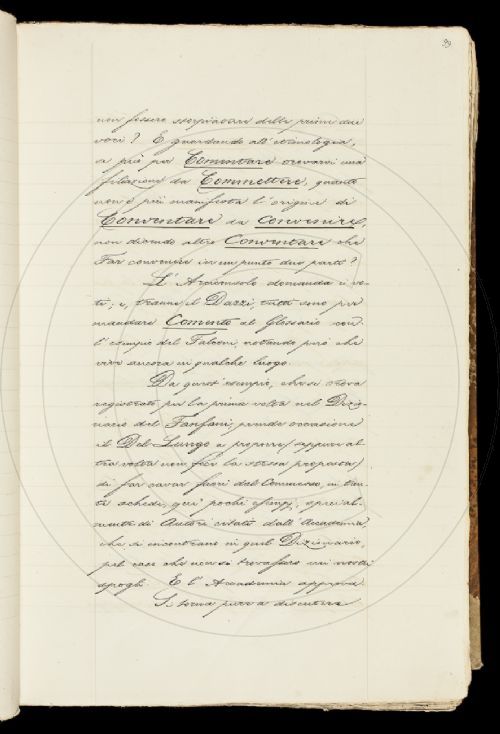 99
non fossero scorpiature delle prime due
voci? E guardando all'etimologia,
se può per Commentare trovarsi una
filiazione da Commettere, quanto
non è più manifesta l'origine di
Conventare da Convenire,
non dicendo altro Conventare che
Far convenire in un punto due parti?
L'Arciconsolo domanda i vo-
ti, e, tranne il Dazzi, tutti sono per
mandare Comento al Glossario con
l'esempio del Falconi, notando però che
vive ancora in qualche luogo.
Da quest'esempio, che si trova
registrato per la prima volta nel Dizio-
nario del Fanfani, prende occasione
il Del-Lungo a proporre (seppure al
tra volta non fece la stessa proposta)
di far cavar fuori dal Commesso, in tan-
te schede, quei pochi esempj, special-
mente di Autori citati dall'Accademia,
che si incontrano in quel Dizionario,
pel caso che non si trovassero nei nostri
spogli. E l'Accademia approva.
Si torna pure a discutere